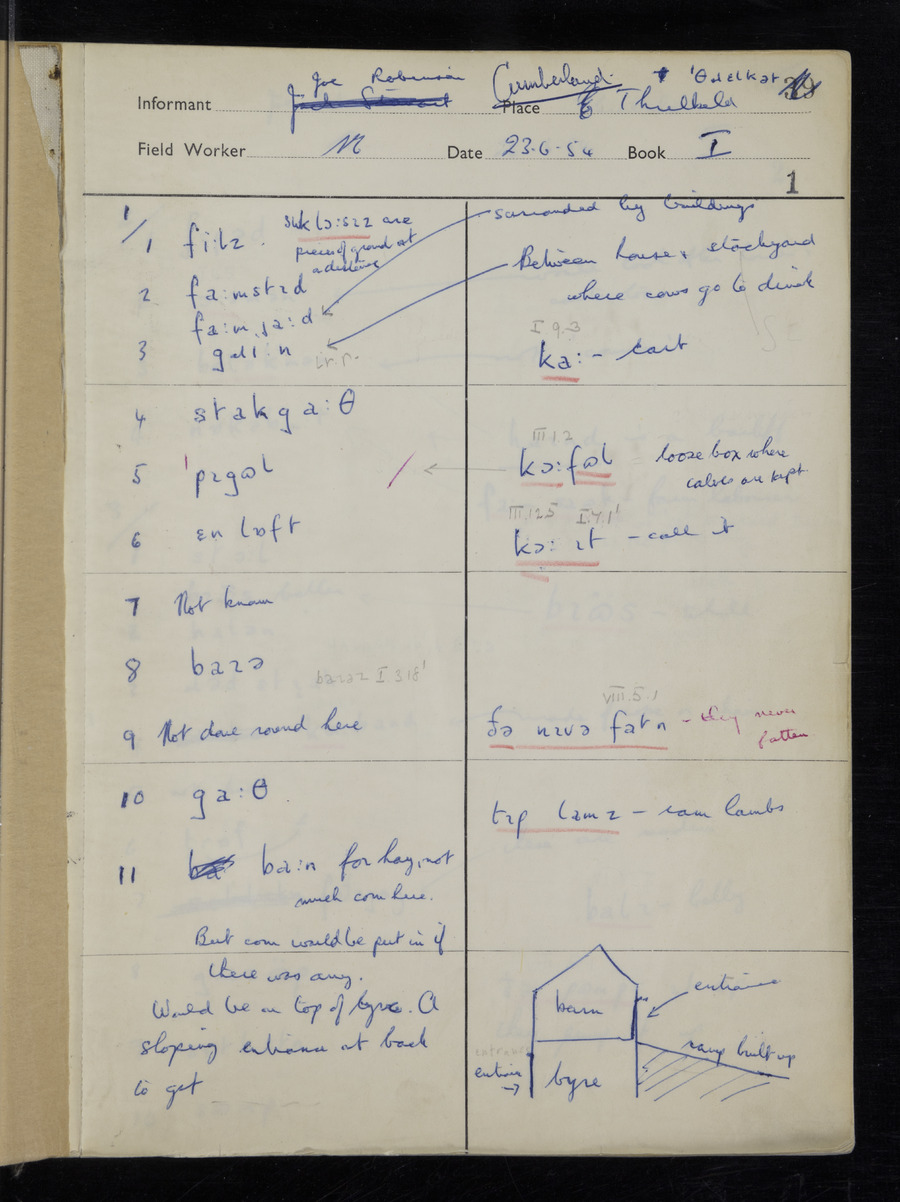 Joe Robinson Cumberland
Informant Place 6 Threlkeld
Field Worker N Date 23.6.54 Book I
1
1/
1 fi:lz
are
pieces of ground at
a distance
surrounded by buildings
2 fa:mstɛd
Between house & stackyard
where cows go to drink
fa:m ja:d
3
I 9.3
ka: - cart
4 stakga:θ
5 'pɪgəl
III 1.2
kɔ:fəl loose box where
calves are kept
6 ɛn lɒft
kɔ: ɪt - call it
7 Not known
8 barə
barəz I 3 18'
9 Not done round here
VIII.5.1
ðə nɪvə fatn - they never
fatten
10 ga:θ
tɪp lamz - ram lambs
11 ba:n for hay, not
much corn here.
But corn would be put in if
there was any.
Would be on top of byre. A
sloping entrance at back
to get
barn
entrance
ramp built up
entrance
byre